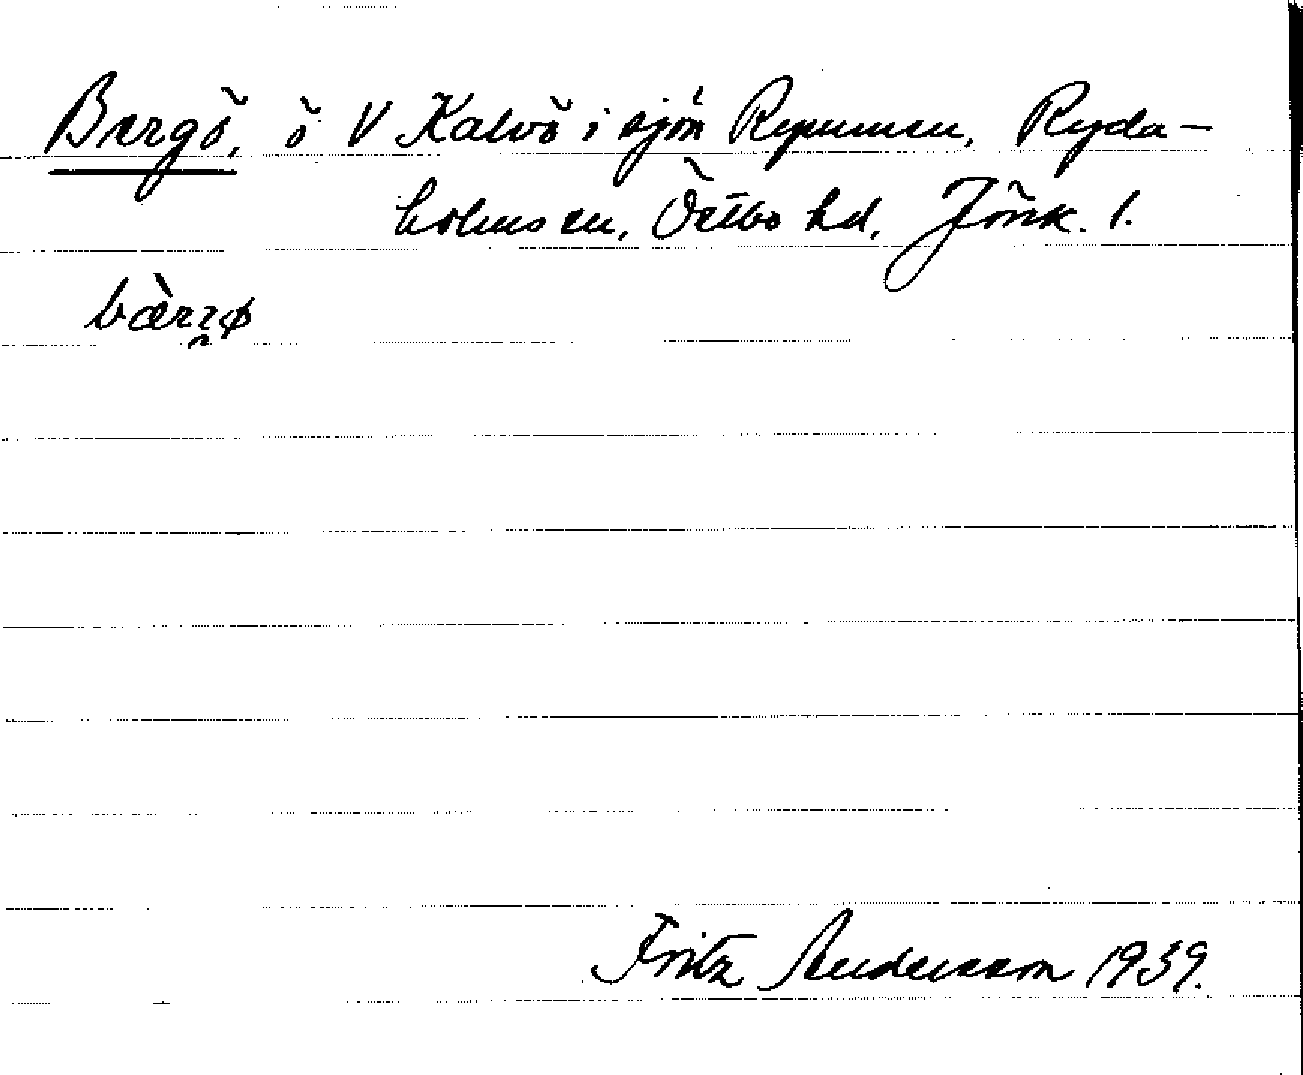 Bergö, ö V Kalvö i sjön Rymmen, Ryda-
holms sn, Östbo hd, Jönk. l.
bæ̀rɜø
Fritz Andersson 1939.